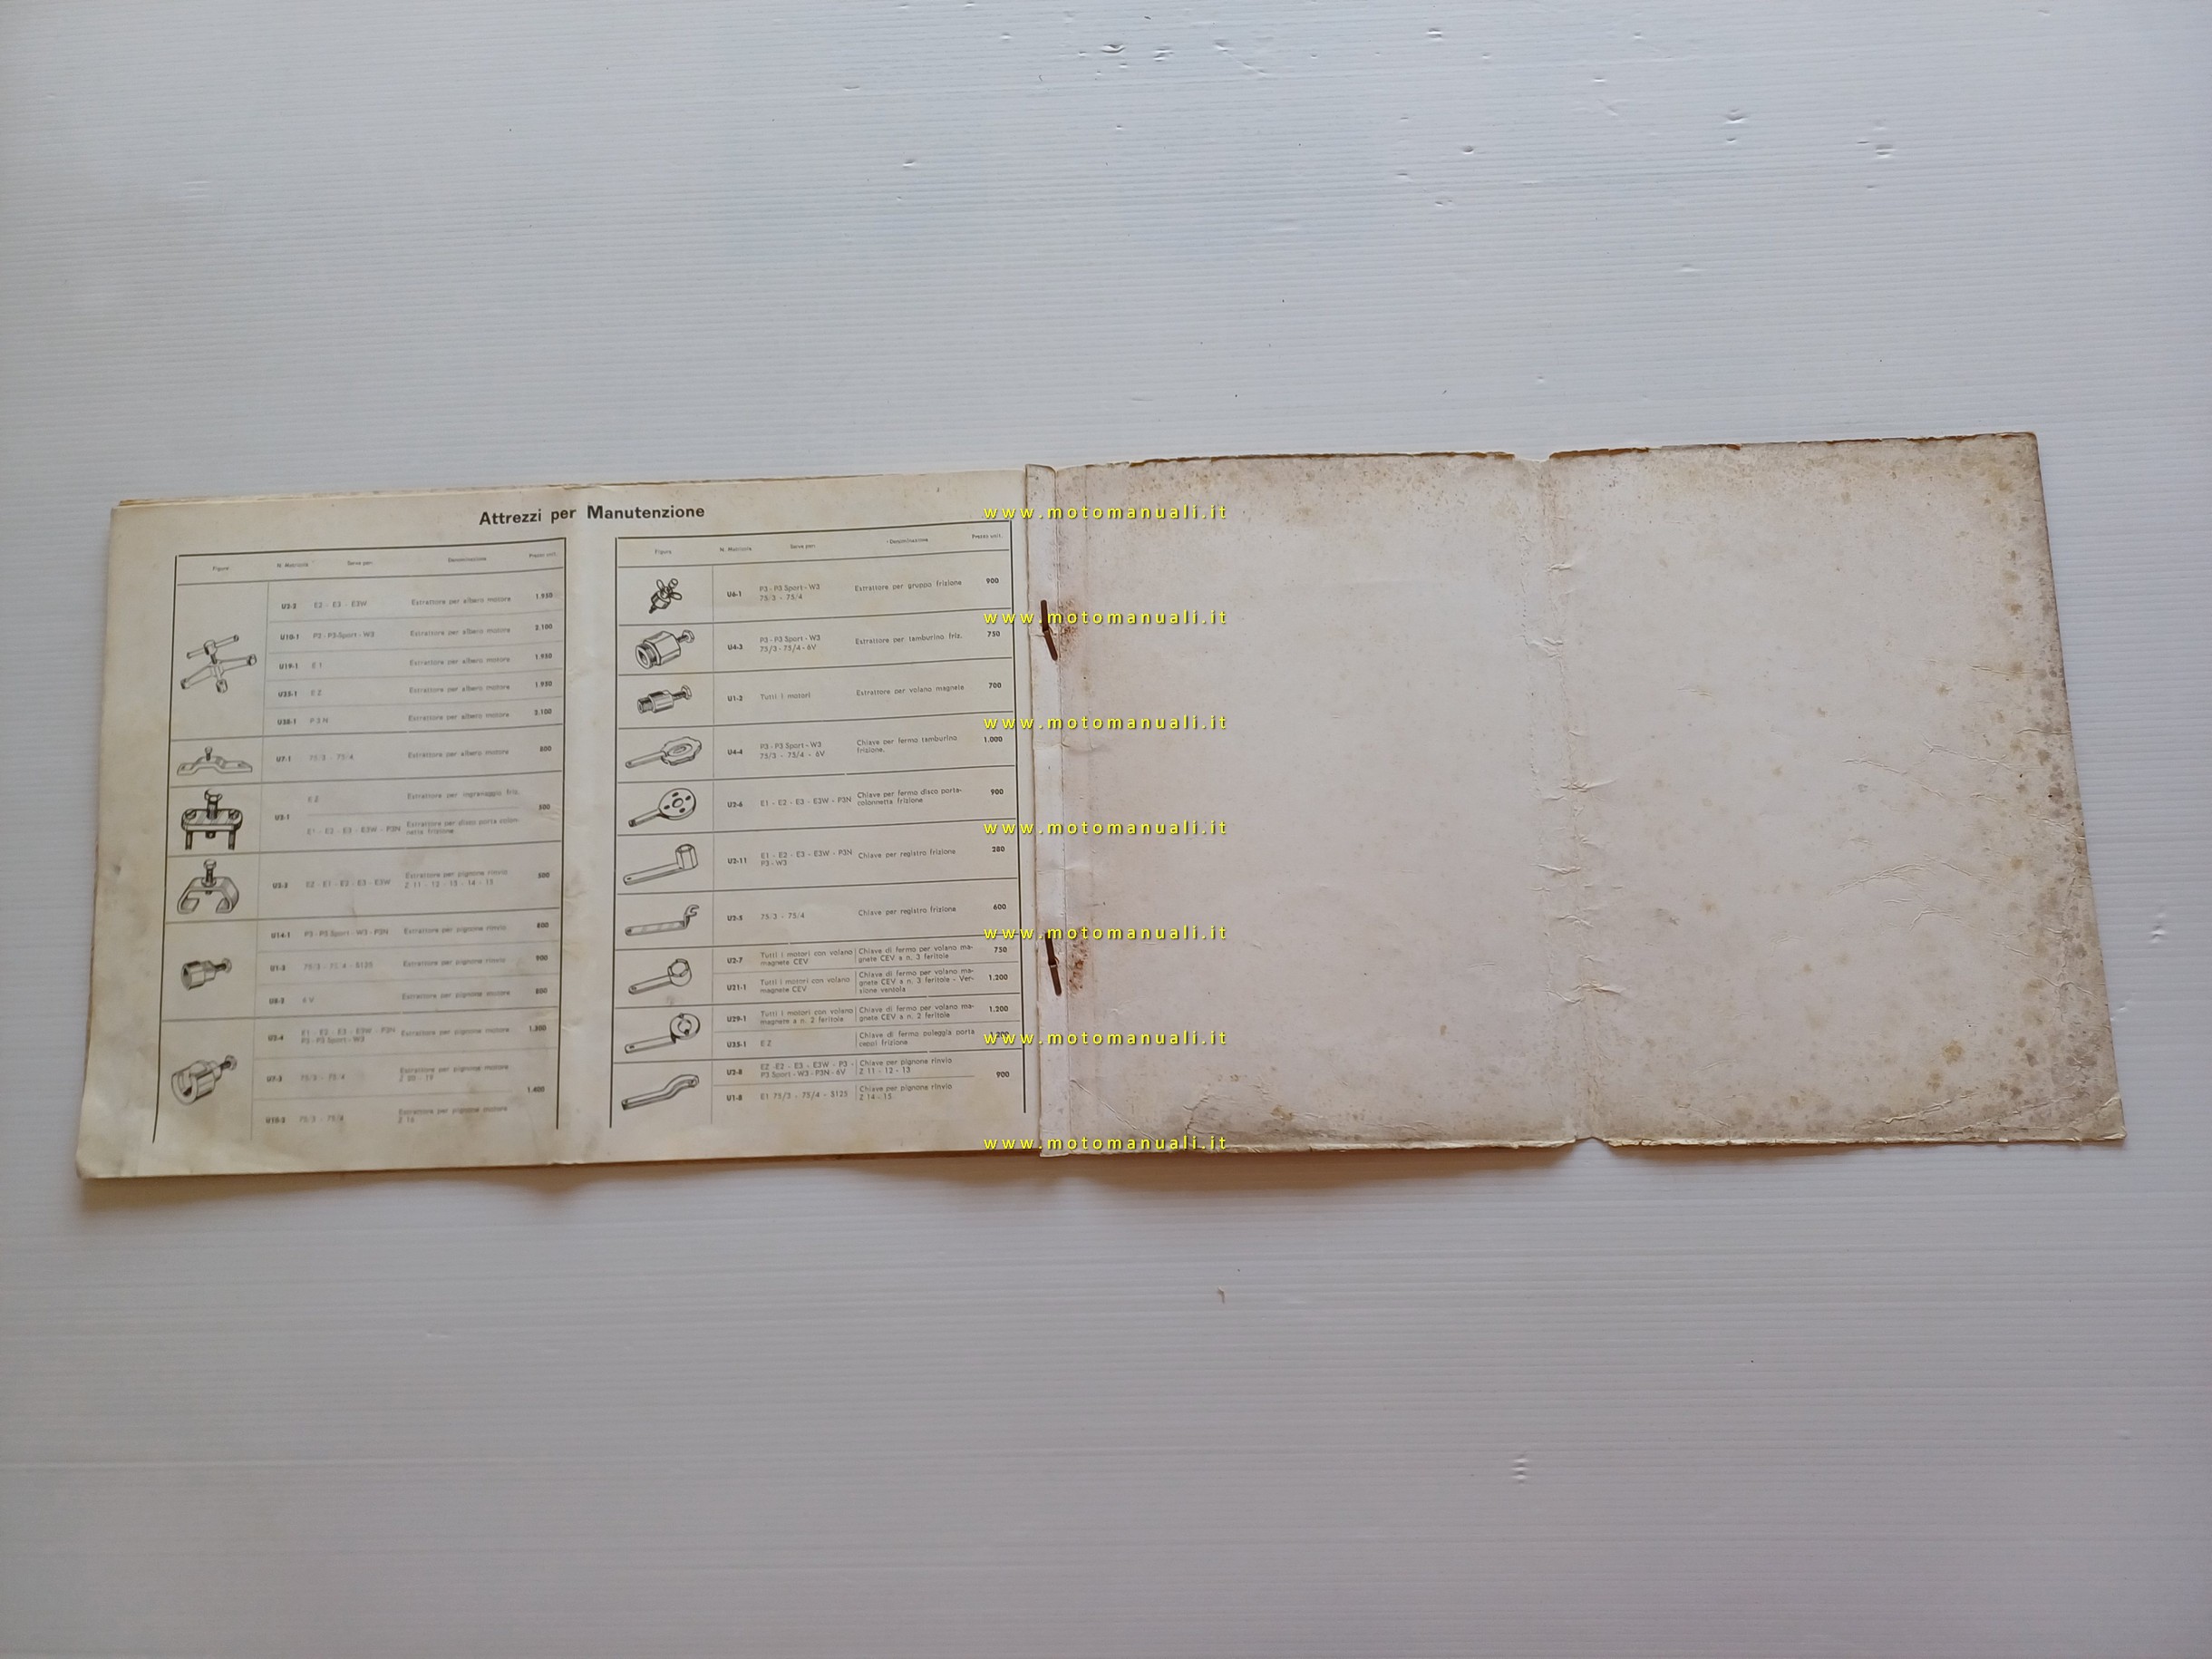 Attrezzi per Manutenzione
Figura N. Matricola Serve per: Denominazione Prezzo unit.
E2 - E3 - E3W Estrattore per albero motore 1.950
U10-1 P3 - P3 Sport - W3 Estrattore per albero motore 2.100
U19-1 E 1 Estrattore per albero motore 1.950
U25-1 E Z Estrattore per albero motore 1.950
U38-1 P 3 N Estrattore per albero motore
U7-1 75/3 - 75/4 Estrattore per albero motore 800
E Z Estrattore per ingranaggio friz.
U2-1 500
E1 - E2 - E3 - E3W - P3N Estrattore per disco porta colon-
netta frizione
EZ - E1 - E2 - E3 - E3W Estrattore per pignone rinvio 500
Z 11 - 12 - 13 - 14 - 15
U14-1 P3 - P3 Sport - W3 - P3N Estrattore per pignone rinvio 800
U1-3 75/3 - 75/4 - S125 Estrattore per pignone rinvio 900
6 V Estrattore per pignone motore 800
U2-4 E1 - E2 - E3 - E3W - P3N Estrattore per pignone motore 1.300
P3 - P3 Sport - W3
U7-3 75/3 - 75/4 Estrattore per pignone motore
1.400
75/3 - 75/4 Estrattore per pignone motore
Figura N. Matricola Serve per: Denominazione Prezzo unit.
U6-1 P3 - P3 Sport - W3 Estrattore per gruppo frizione 900
75/3 - 75/4
U4-3 P3 - P3 Sport - W3 Estrattore per tamburino friz. 750
75/3 - 75/4 - 6V
U1-2 Tutti i motori Estrattore per volano magnete 700
U4-4 P3 - P3 Sport - W3 Chiave per fermo tamburino 1.000
75/3 - 75/4 - 6V frizione.
U2-6 E1 - E2 - E3 - E3W - P3N Chiave per fermo disco porta- 900
colonnetta frizione
U2-11 E1 - E2 - E3 - E3W - P3N Chiave per registro frizione 280
P3 - W3
U2-5 75/3 - 75/4 Chiave per registro frizione 600
U2-7 Tutti i motori con volano Chiave di fermo per volano ma- 750
magnete CEV gnete CEV a n. 3 feritoie
U21-1 Tutti i motori con volano Chiave di fermo per volano ma- 1.200
magnete CEV gnete CEV a n. 3 feritoie - Ver-
sione ventola
U29-1 Tutti i motori con volano Chiave di fermo per volano ma- 1.200
magnete a n. 2 feritoie gnete CEV a n. 2 feritoie
U35-1 E Z Chiave di fermo puleggia porta 1.200
ceppi frizione
U2-8 EZ - E2 - E3 - E3W - P3 - Chiave per pignone rinvio
P3 Sport - W3 - P3N - 6V Z 11 - 12 - 13
900
U1-8 E1 75/3 - 75/4 - S125 Chiave per pignone rinvio
Z 14 - 15
www.motomanuali.it
www.motomanuali.it
www.motomanuali.it
www.motomanuali.it
www.motomanuali.it
www.motomanuali.it
www.motomanuali.it